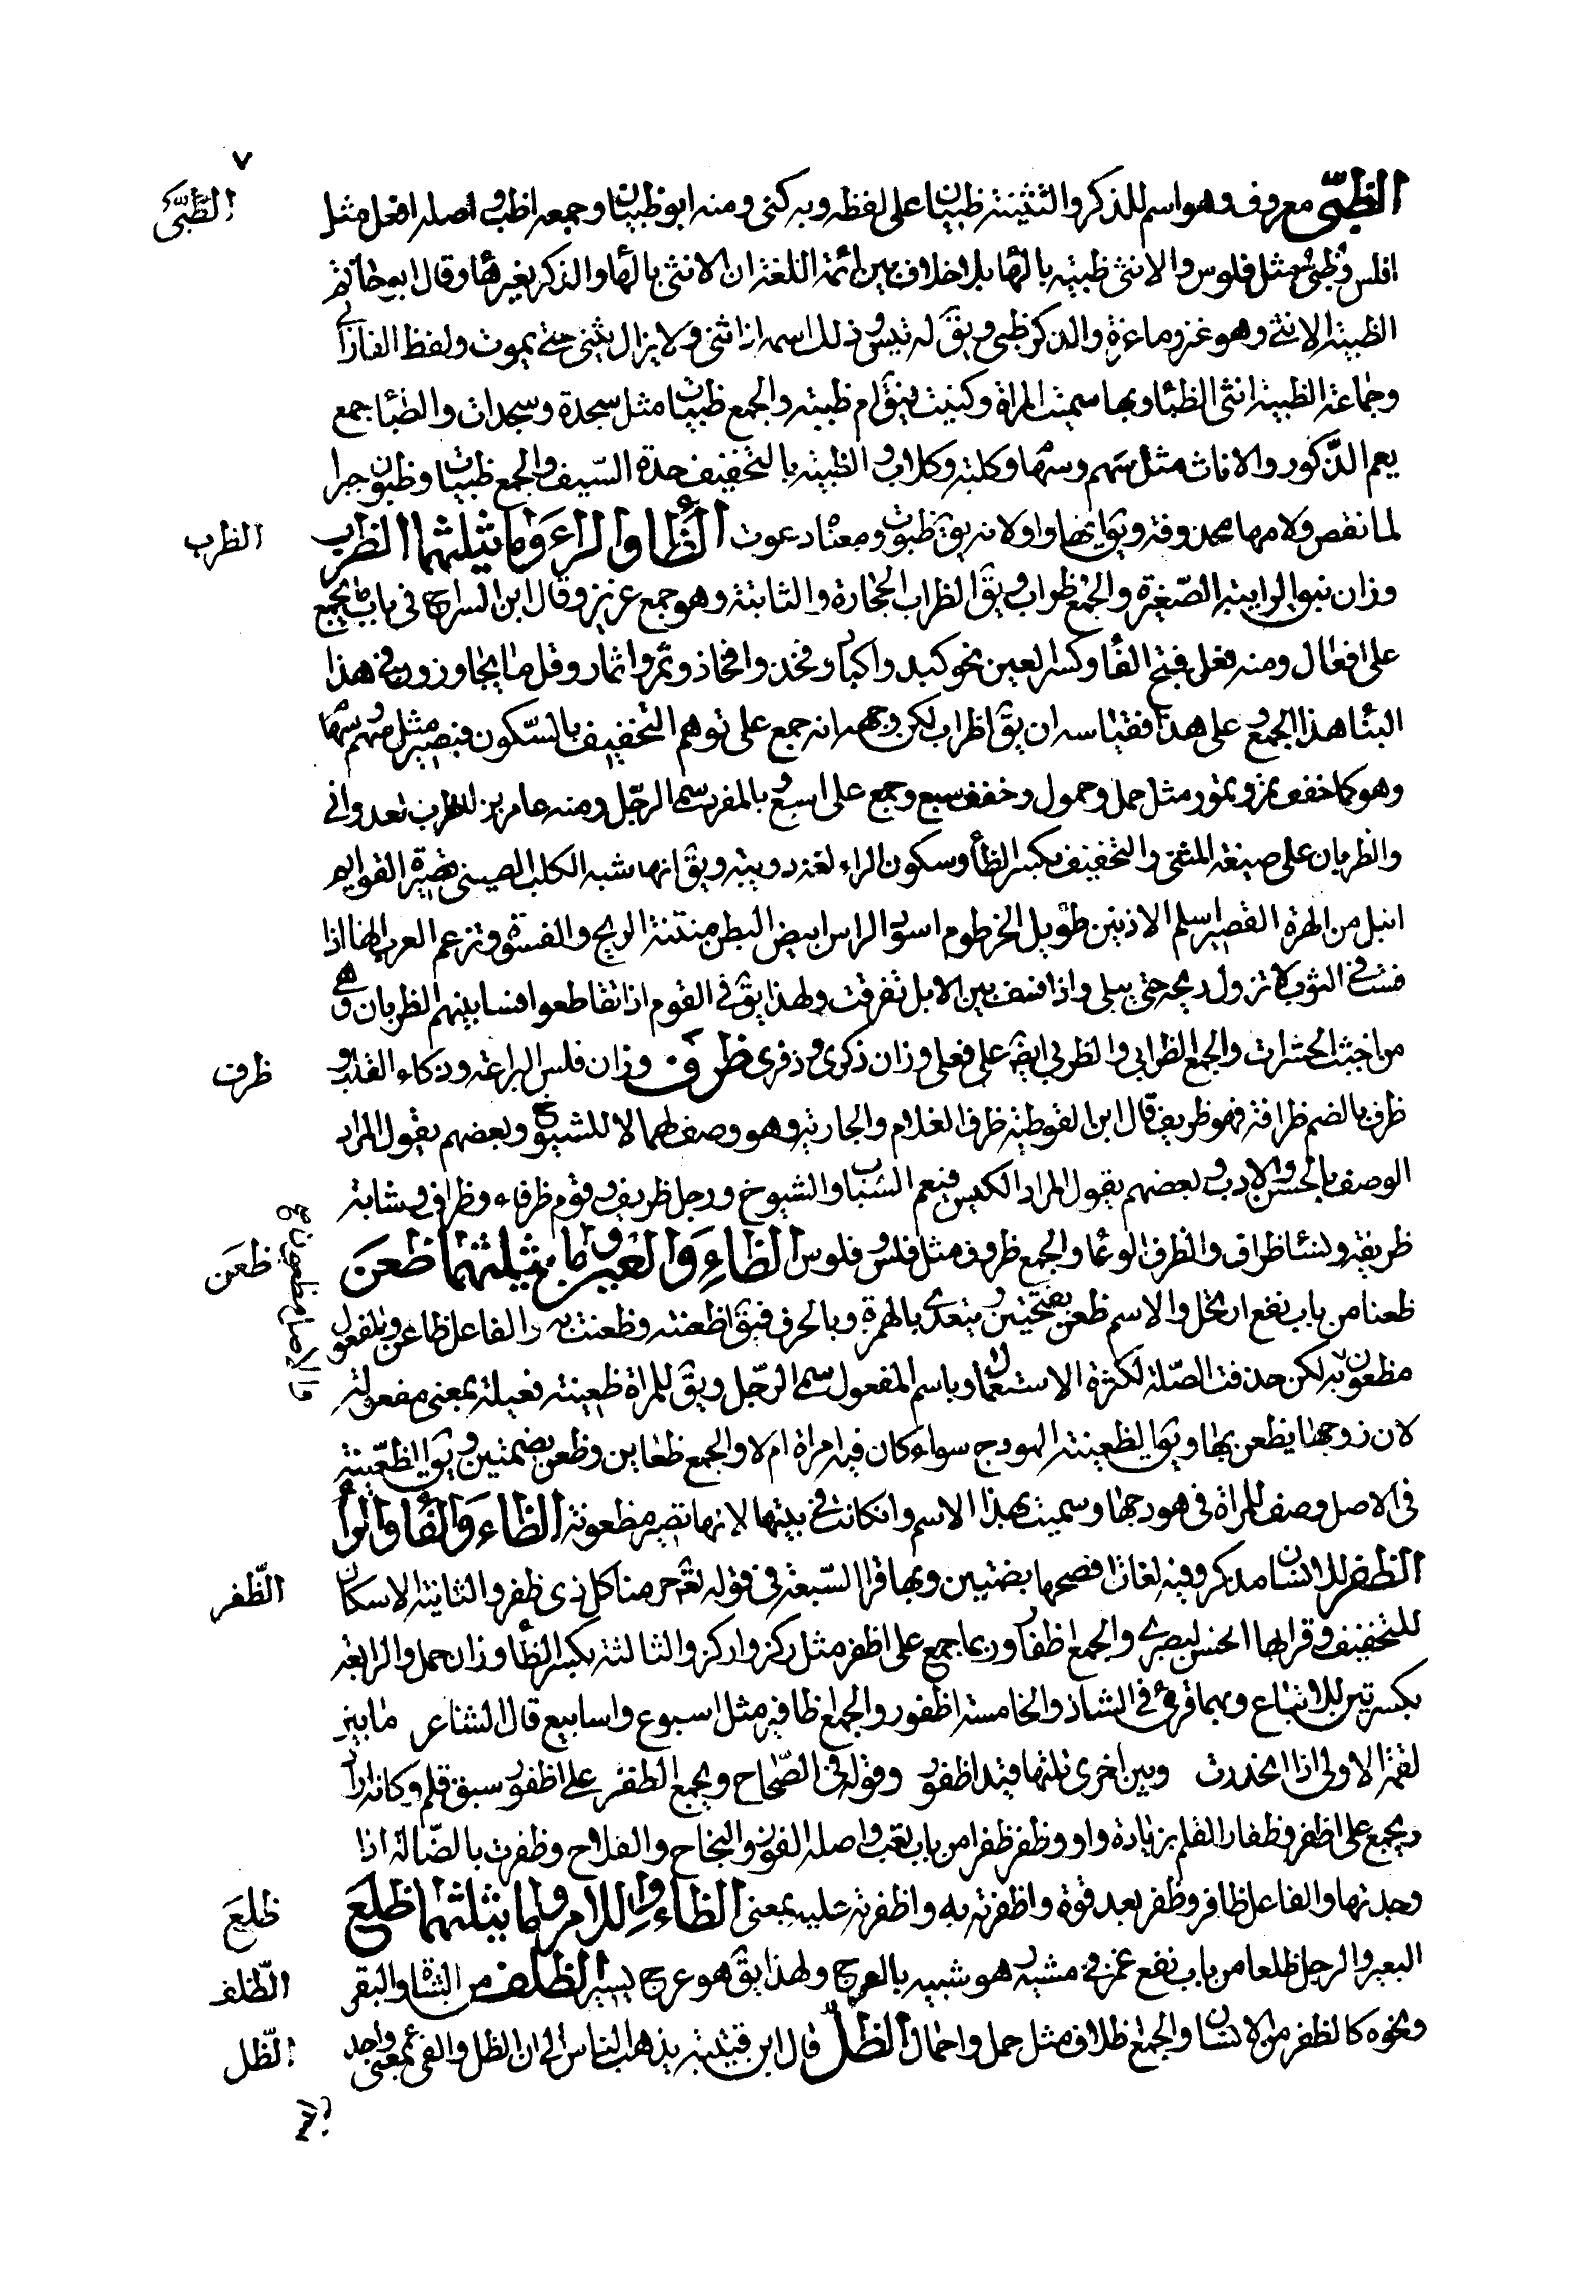 ٧
الظبي معروف وهو اسم للذكر والتثنية ظبيان على لفظه وبه كنى ومنه ابو ظبيان وجمعه اظب واصله افعل مثل
الظَّبْىُ
افلس وظبى مثل فلوس والانثى ظبية بالهاء بلا خلاف بين ائمة اللغة ان الانثى بالهاء والذكر بغير هاء وقال ابو حاتم
الظبية الانثى وهو عنز وماعزة والذكر ظبى ويق له تيس وذلك اسمه اذا اثنى ولا يزال يثنى حتى يموت ولفظ الفارابى
وجماعة الظبية انثى الظباء وبها سميت المراة وكنيت فيق ام ظبية والجمع ظبيات مثل سجدة وسجدات والظباء جمع
يعم الذكور والاناث مثل سهم وسهام وكلبة وكلاب والظبة بالتخفيف حدة السيف والجمع ظبات وظبون جبرا
لما نقص ولامها محذوفة ويق انها واو لانه يق ظبوت ومعناه دعوت الظاء والراء وما يثلثهما الظرب
الظرب
وزان نبق الرابية الصغيرة والجمع ظراب ويق الظراب الحجارة والثابتة وهو جمع عزيز وقال ابن السراج فى باب ما يجمع
على افعال ومنه فعل بفتح الفاء وكسر العين نحو كبد واكباد وفخذ وافخاذ ونمر وانمار وقل ما يجاوزون فى هذا
البناء هذا الجمع وعلى هذا فقياسه ان يق اظراب لكن وجهه انه جمع على توهم التخفيف بالسكون فيصير مثل سهم وسهام
وهو كما خفف نمر ونمور مثل حمل وحمول وخفف سبع وجمع على اسبع وبالمفرد سمى الرجل ومنه عامر بن الظرب العدوانى
والظربان على صيغة المثنى والتخفيف بكسر الظاء وسكون الراء لغة دويبة ويق انها شبه الكلب الصينى قصيرة القوايم
انبل من الهرة القصير اسلم الاذنين طويل الخرطوم اسود الراس ابيض البطن منتنة الريح والفسو وتزعم العرب انها اذا
فست فى الثوب لا تزول ريحه حتى يبلى واذا فسف بين الابل تفرقت ولهذا يق فى القوم اذا تقاطعوا فسا بينهم الظربان وهى
من اخبث الحشرات والجمع الظرابى والظربى ايضا على فعلى وزان ذكرى وذفرى ظرف وزان فلس البراعة وذكاء القلب و
ظرف
ظرف بالضم ظرافة فهو ظريف قال ابن القوطية ظرف الغلام والجارية وهو وصف لهما لا للشيوخ وبعضهم يقول المراد
الوصف بالحسن والادب وبعضهم يقول المراد الكيس فيعم الشباب والشيوخ ورجل ظريف وقوم ظرفاء وظراف وشابة
ظريفة ونساء ظراف والظرف الوعاء والجمع ظروف مثل فلس وفلوس الظاء والعين وما يثلثهما ظعن
ظعَن
ظعنا من باب نفع ارتحل والاسم ظعن بفتحتين ويتعدى بالهمزة وبالحرف فيق اظعنته وظعنت به والفاعل ظاعن والمفعول
والاصل مظعون ع
مظعون به لكن حذفت الصلة لكثرة الاستعمال وباسم المفعول سمى الرجل ويق للمراة ظعينة فعيلة بمعنى مفعولة
لان زوجها يظعن بها ويق الظعينة الهودج سواء كان فيه امراة ام لا والجمع ظعاين وظعن بضمتين ويق الظعينة
فى الاصل وصف للمراة فى هودجها وسميت بهذا الاسم وان كانت فى بيتها لانها تصير مظعونة الظاء والفاء والراء
الظفر للانسان مذكر وفيه لغات افصحها بضمتين وبها قرا السبعة فى قوله تع حرمنا كل ذى ظفر والثانية الاسكان
الظّفر
للتخفيف وقرا بها الحسن البصرى والجمع اظفار وربما جمع على اظفر مثل ركز واركز والثالثة بكسر الظاء وزان حمل والرابعة
بكسرتين للاتباع وبهما قرئ فى الشاذ والخامسة اظفور والجمع اظافير مثل اسبوع واسابيع قال الشاعر ما بين
لقمة الاولى اذا انحدرت وبين اخرى تليها قيد اظفور وقوله فى الصحاح ويجمع الظفر على اظفور سبق قلم وكانه اراد
ويجمع على اظفر وظفار القلم بزيادة واو وظفر ظفرا من باب تعب واصله الفوز والنجاح والفلاح وظفرت بالضالة اذا
وجدتها والفاعل ظافر وظفر بعد قوة واظفرته به واظفرته عليه بمعنى الظاء واللام وما يثلثهما ظلع
ظلعَ
البعير والرجل ظلعا من باب نفع غمز فى مشيه وهو شبيه بالعرج ولهذا يق هو عرج يسير الظلف من الشاة والبقر
الظّلف
ونحوه كالظفر من الانسان والجمع اظلاف مثل حمل واحمال الظل قال ابن قتيبة يذهب الناس الى ان الظل والفئ بمعنى واحد
الظّل